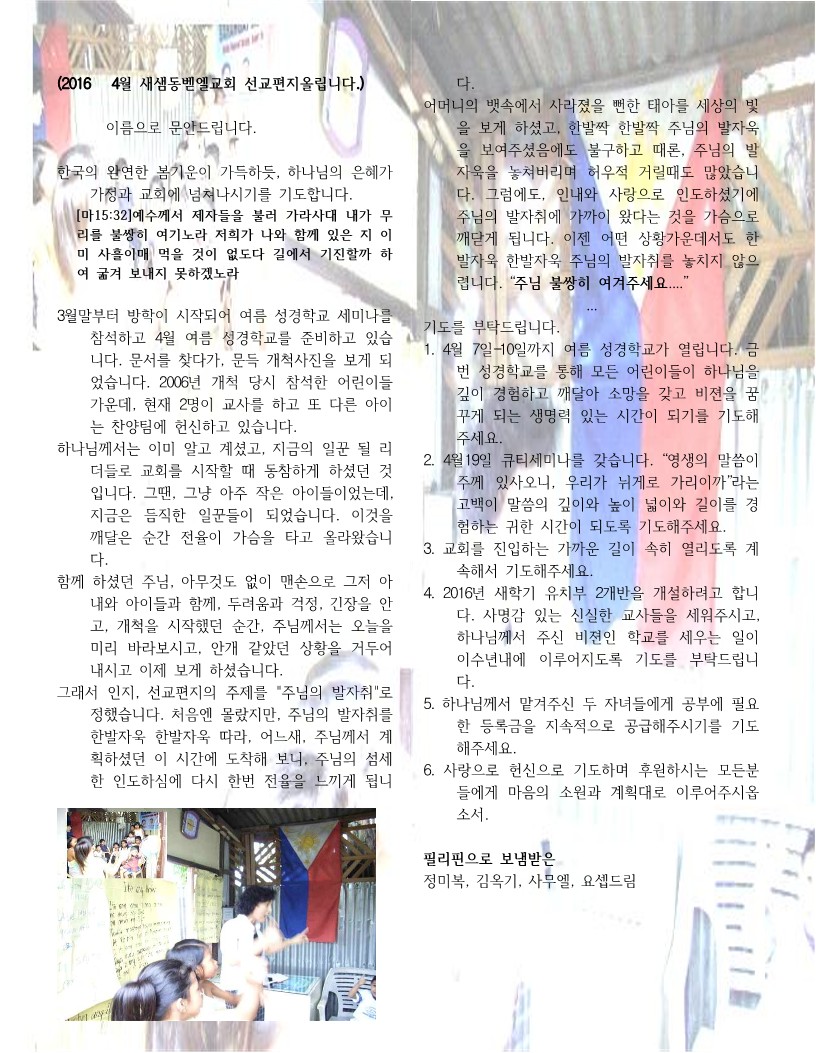 (2016 4월 새샘동벧엘교회 선교편지올립니다.)
이름으로 문안드립니다.
한국의 완연한 봄기운이 가득하듯, 하나님의 은혜가
가정과 교회에 넘쳐나시기를 기도합니다.
[마15:32]예수께서 제자들을 불러 가라사대 내가 무
리를 불쌍히 여기노라 저희가 나와 함께 있은 지 이
미 사흘이매 먹을 것이 없도다 길에서 기진할까 하
여 굶겨 보내지 못하겠노라
3월말부터 방학이 시작되어 여름 성경학교 세미나를
참석하고 4월 여름 성경학교를 준비하고 있습
니다. 문서를 찾다가, 문득 개척사진을 보게 되
었습니다. 2006년 개척 당시 참석한 어린이들
가운데, 현재 2명이 교사를 하고 또 다른 아이
는 찬양팀에 헌신하고 있습니다.
하나님께서는 이미 알고 계셨고, 지금의 일꾼 될 리
더들로 교회를 시작할 때 동참하게 하셨던 것
입니다. 그땐, 그냥 아주 작은 아이들이었는데,
지금은 듬직한 일꾼들이 되었습니다. 이것을
깨달은 순간 전율이 가슴을 타고 올라왔습니
다.
함께 하셨던 주님, 아무것도 없이 맨손으로 그저 아
내와 아이들과 함께, 두려움과 걱정, 긴장을 안
고, 개척을 시작했던 순간, 주님께서는 오늘을
미리 바라보시고, 안개 같았던 상황을 거두어
내시고 이제 보게 하셨습니다.
그래서 인지, 선교편지의 주제를 "주님의 발자취"로
정했습니다. 처음엔 몰랐지만, 주님의 발자취를
한발자욱 한발자욱 따라, 어느새, 주님께서 계
획하셨던 이 시간에 도착해 보니, 주님의 섬세
한 인도하심에 다시 한번 전율을 느끼게 됩니
다.
어머니의 뱃속에서 사라졌을 뻔한 태아를 세상의 빛
을 보게 하셨고, 한발짝 한발짝 주님의 발자욱
을 보여주셨음에도 불구하고 때론, 주님의 발
자욱을 놓쳐버리며 허우적 거릴때도 많았습니
다. 그럼에도, 인내와 사랑으로 인도하셨기에
주님의 발자취에 가까이 왔다는 것을 가슴으로
깨닫게 됩니다. 이젠 어떤 상황가운데서도 한
발자욱 한발자욱 주님의 발자취를 놓치지 않으
렵니다. “주님 불쌍히 여겨주세요....”
...
기도를 부탁드립니다.
1. 4월 7일-10일까지 여름 성경학교가 열립니다. 금
번 성경학교를 통해 모든 어린이들이 하나님을
깊이 경험하고 깨달아 소망을 갖고 비젼을 꿈
꾸게 되는 생명력 있는 시간이 되기를 기도해
주세요.
2. 4월19일 큐티세미나를 갖습니다. “영생의 말씀이
주께 있사오니, 우리가 뉘게로 가리이까”라는
고백이 말씀의 깊이와 높이 넓이와 길이를 경
험하는 귀한 시간이 되도록 기도해주세요.
3. 교회를 진입하는 가까운 길이 속히 열리도록 계
속해서 기도해주세요.
4. 2016년 새학기 유치부 2개반을 개설하려고 합니
다. 사명감 있는 신실한 교사들을 세워주시고,
하나님께서 주신 비젼인 학교를 세우는 일이
이수년내에 이루어지도록 기도를 부탁드립니
다.
5. 하나님께서 맡겨주신 두 자녀들에게 공부에 필요
한 등록금을 지속적으로 공급해주시기를 기도
해주세요.
6. 사랑으로 헌신으로 기도하며 후원하시는 모든분
들에게 마음의 소원과 계획대로 이루어주시옵
소서.
필리핀으로 보냄받은
정미복, 김옥기, 사무엘, 요셉드림